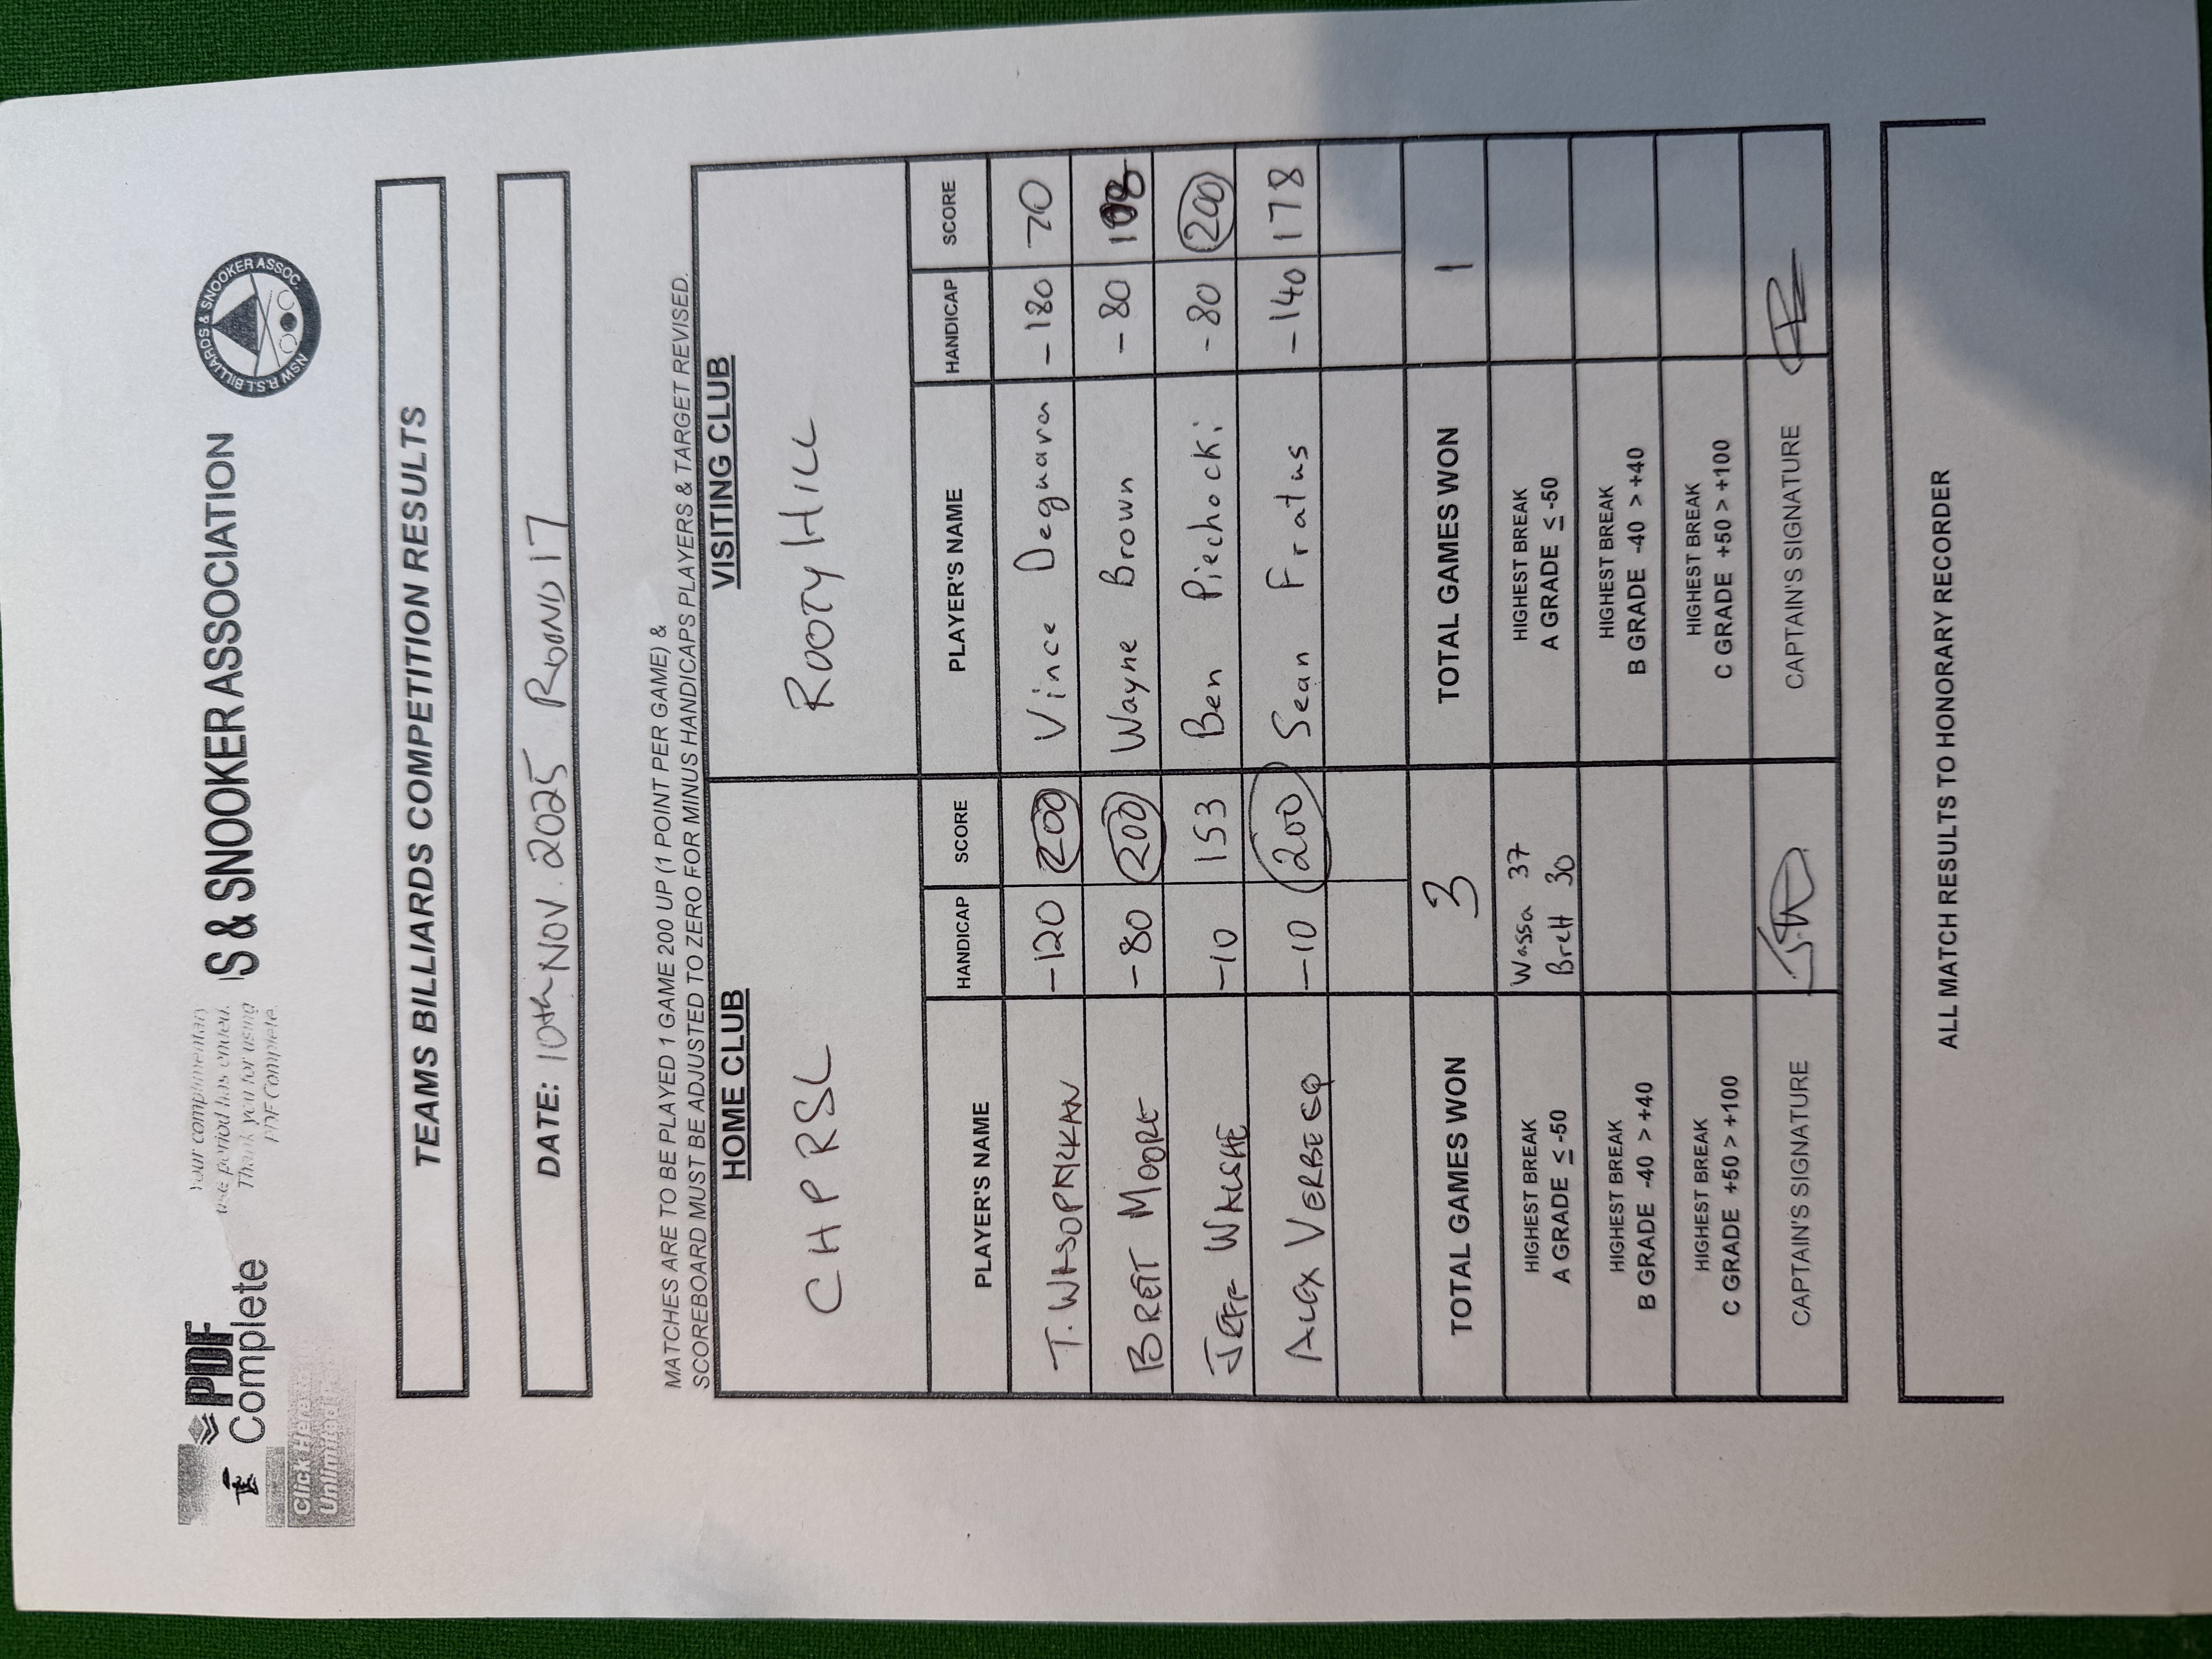 Your complimentary
use period has ended.
Thank you for using
PDF Complete.
PDF
Complete
Click Here
Unlimited
S & SNOOKER ASSOCIATION
NSW R.S.L BILLIARDS & SNOOKER ASSOC.
TEAMS BILLIARDS COMPETITION RESULTS
DATE: 10th NOV. 2025 ROUND 17
MATCHES ARE TO BE PLAYED 1 GAME 200 UP (1 POINT PER GAME) &
SCOREBOARD MUST BE ADJUSTED TO ZERO FOR MINUS HANDICAPS PLAYERS & TARGET REVISED.
HOME CLUB VISITING CLUB
CHPRSL ROOTY HILL
PLAYER'S NAME HANDICAP SCORE PLAYER'S NAME HANDICAP SCORE
T. WASOPAKKAN -120 200 Vince Deguara -180 70
BRETT MOORE -80 200 Wayne Brown -80
JEFF WALSHE -10 153 Ben Piechocki -80 200
ALEX VERBEEQ -10 200 Sean Fratus -140 178
TOTAL GAMES WON 3 TOTAL GAMES WON 1
HIGHEST BREAK Wassa 37 HIGHEST BREAK
A GRADE ≤ -50 Brett 30 A GRADE ≤ -50
HIGHEST BREAK HIGHEST BREAK
B GRADE -40 > +40 B GRADE -40 > +40
HIGHEST BREAK HIGHEST BREAK
C GRADE +50 > +100 C GRADE +50 > +100
CAPTAIN'S SIGNATURE CAPTAIN'S SIGNATURE
ALL MATCH RESULTS TO HONORARY RECORDER